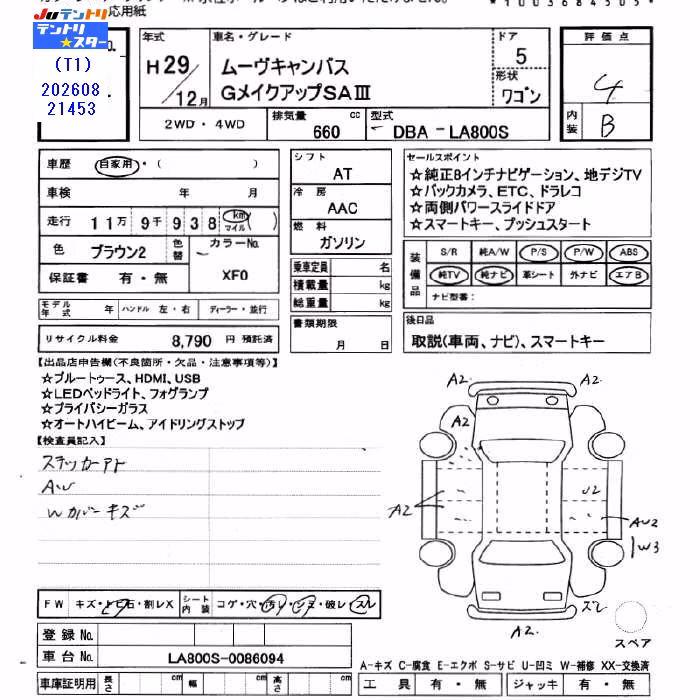 Juテントリ
応用紙
テントリ★スター
(T1)
202608
21453
年式
H29/12月
車名・グレード
ムーヴキャンバス
GメイクアップSAⅢ
ドア
5
形状
ワゴン
評価点
4
内装
B
2WD・4WD
排気量
660
cc
型式
DBA - LA800S
車歴
自家用・( )
車検 年 月
走行 11万9千938 km マイル ( )
色 ブラウン2 色替 カラーNo. XF0
保証書 有・無
モデル年式 年 ハンドル 左・右 ディーラー・並行
リサイクル料金 8,790 円 預託済
シフト
AT
冷房
AAC
燃料
ガソリン
乗車定員 名
積載量 kg
総重量 kg
書類期限
月 日
セールスポイント
☆純正8インチナビゲーション、地デジTV
☆バックカメラ、ETC、ドラレコ
☆両側パワースライドドア
☆スマートキー、プッシュスタート
装備品
S/R 純A/W P/S P/W ABS
純TV 純ナビ 革シート 外ナビ エアB
ナビ型番:
後日品
取説(車両、ナビ)、スマートキー
【出品店申告欄(不良箇所・欠品・注意事項等)】
☆ブルートゥース、HDMI、USB
☆LEDヘッドライト、フォグランプ
☆プライバシーガラス
☆オートハイビーム、アイドリングストップ
【検査員記入】
ステッカーアト
AW
Wカバーキズ
A2
A2
A2
A2
U2
AU2
W3
ズレ
A2
スペア
FW キズ・トビ石・割レX シート内装 コゲ・穴・汚レ・シミ・破レ・スレ
登録No.
車台No. LA800S-0086094
車庫証明用 長さ cm 幅 cm 高さ cm
A-キズ C-腐食 E-エクボ S-サビ U-凹ミ W-補修 XX-交換済
工具 有・無 ジャッキ 有・無